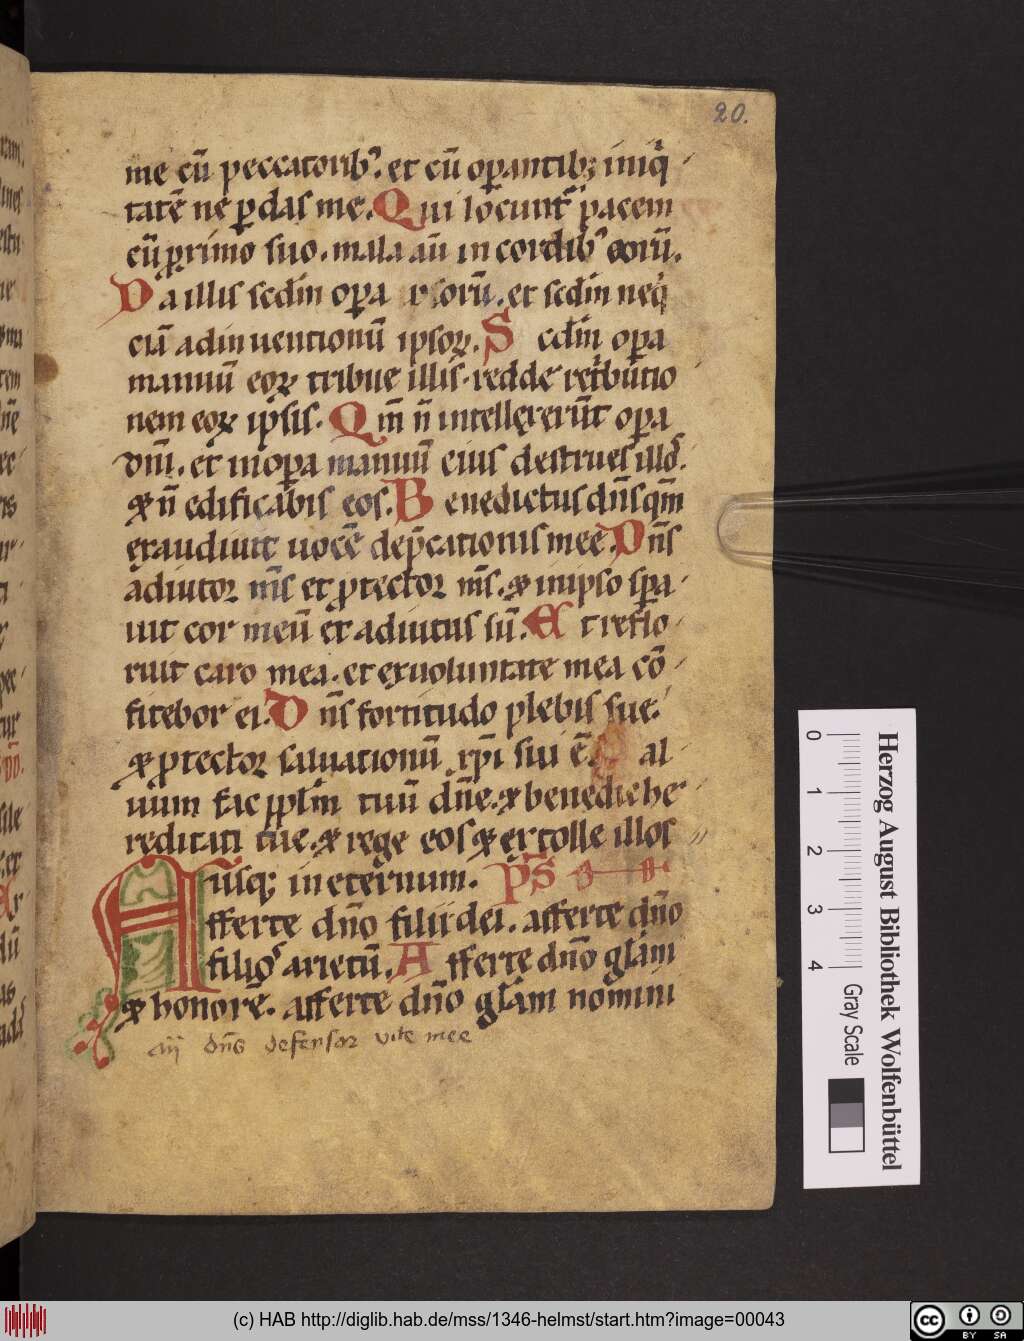 20.
me cū peccatorib᷒. et cū oꝑantibꝫ iniq̇
tatē ne ꝑdas me. Qui locunt᷑ pacem
cū ꝓximo suo. mala aū in cordib᷒ eorū.
Da illis scdm oꝑa ipsorū. et scdm neq̇
ciā adinuentionū ipsoꝝ. Scdm oꝑa
manuū eoꝝ tribue illis. redde ret̓butio
nem eoꝝ ipsis. Qm̄ n̄ intellexerūt oꝑa
dn̄i. et in oꝑa manuū eius destrues illos.
⁊ n̄ edificabis eos. Benedictus dn̄s qm̄
exaudiuit uocē dep̄cationis meę. Dn̄s
adiutor m̄s et ꝓtector m̄s. ⁊ in ipso spa
uit cor meū et adiutus sū. Et reflo
ruit caro mea. et ex uoluntate mea cō
fitebor ei. Dn̄s fortitudo plebis sue.
⁊ ꝓtector saluationū xp̄i sui ē. Sal
uum fac pplm̄ tuū dn̄e. ⁊ benedic he
reditati tue. ⁊ rege eos ⁊ extolle illos
usq; in eternum. Ps
Afferte dn̄o filii dei. afferte dn̄o
filios arietū. Afferte dn̄o glam
⁊ honorē. afferte dn̄o glam nomini
an̄ dn̄s defensor vite mee
Herzog August Bibliothek Wolfenbüttel
0 1 2 3 4
Gray Scale
(c) HAB http://diglib.hab.de/mss/1346-helmst/start.htm?image=00043
cc BY SA